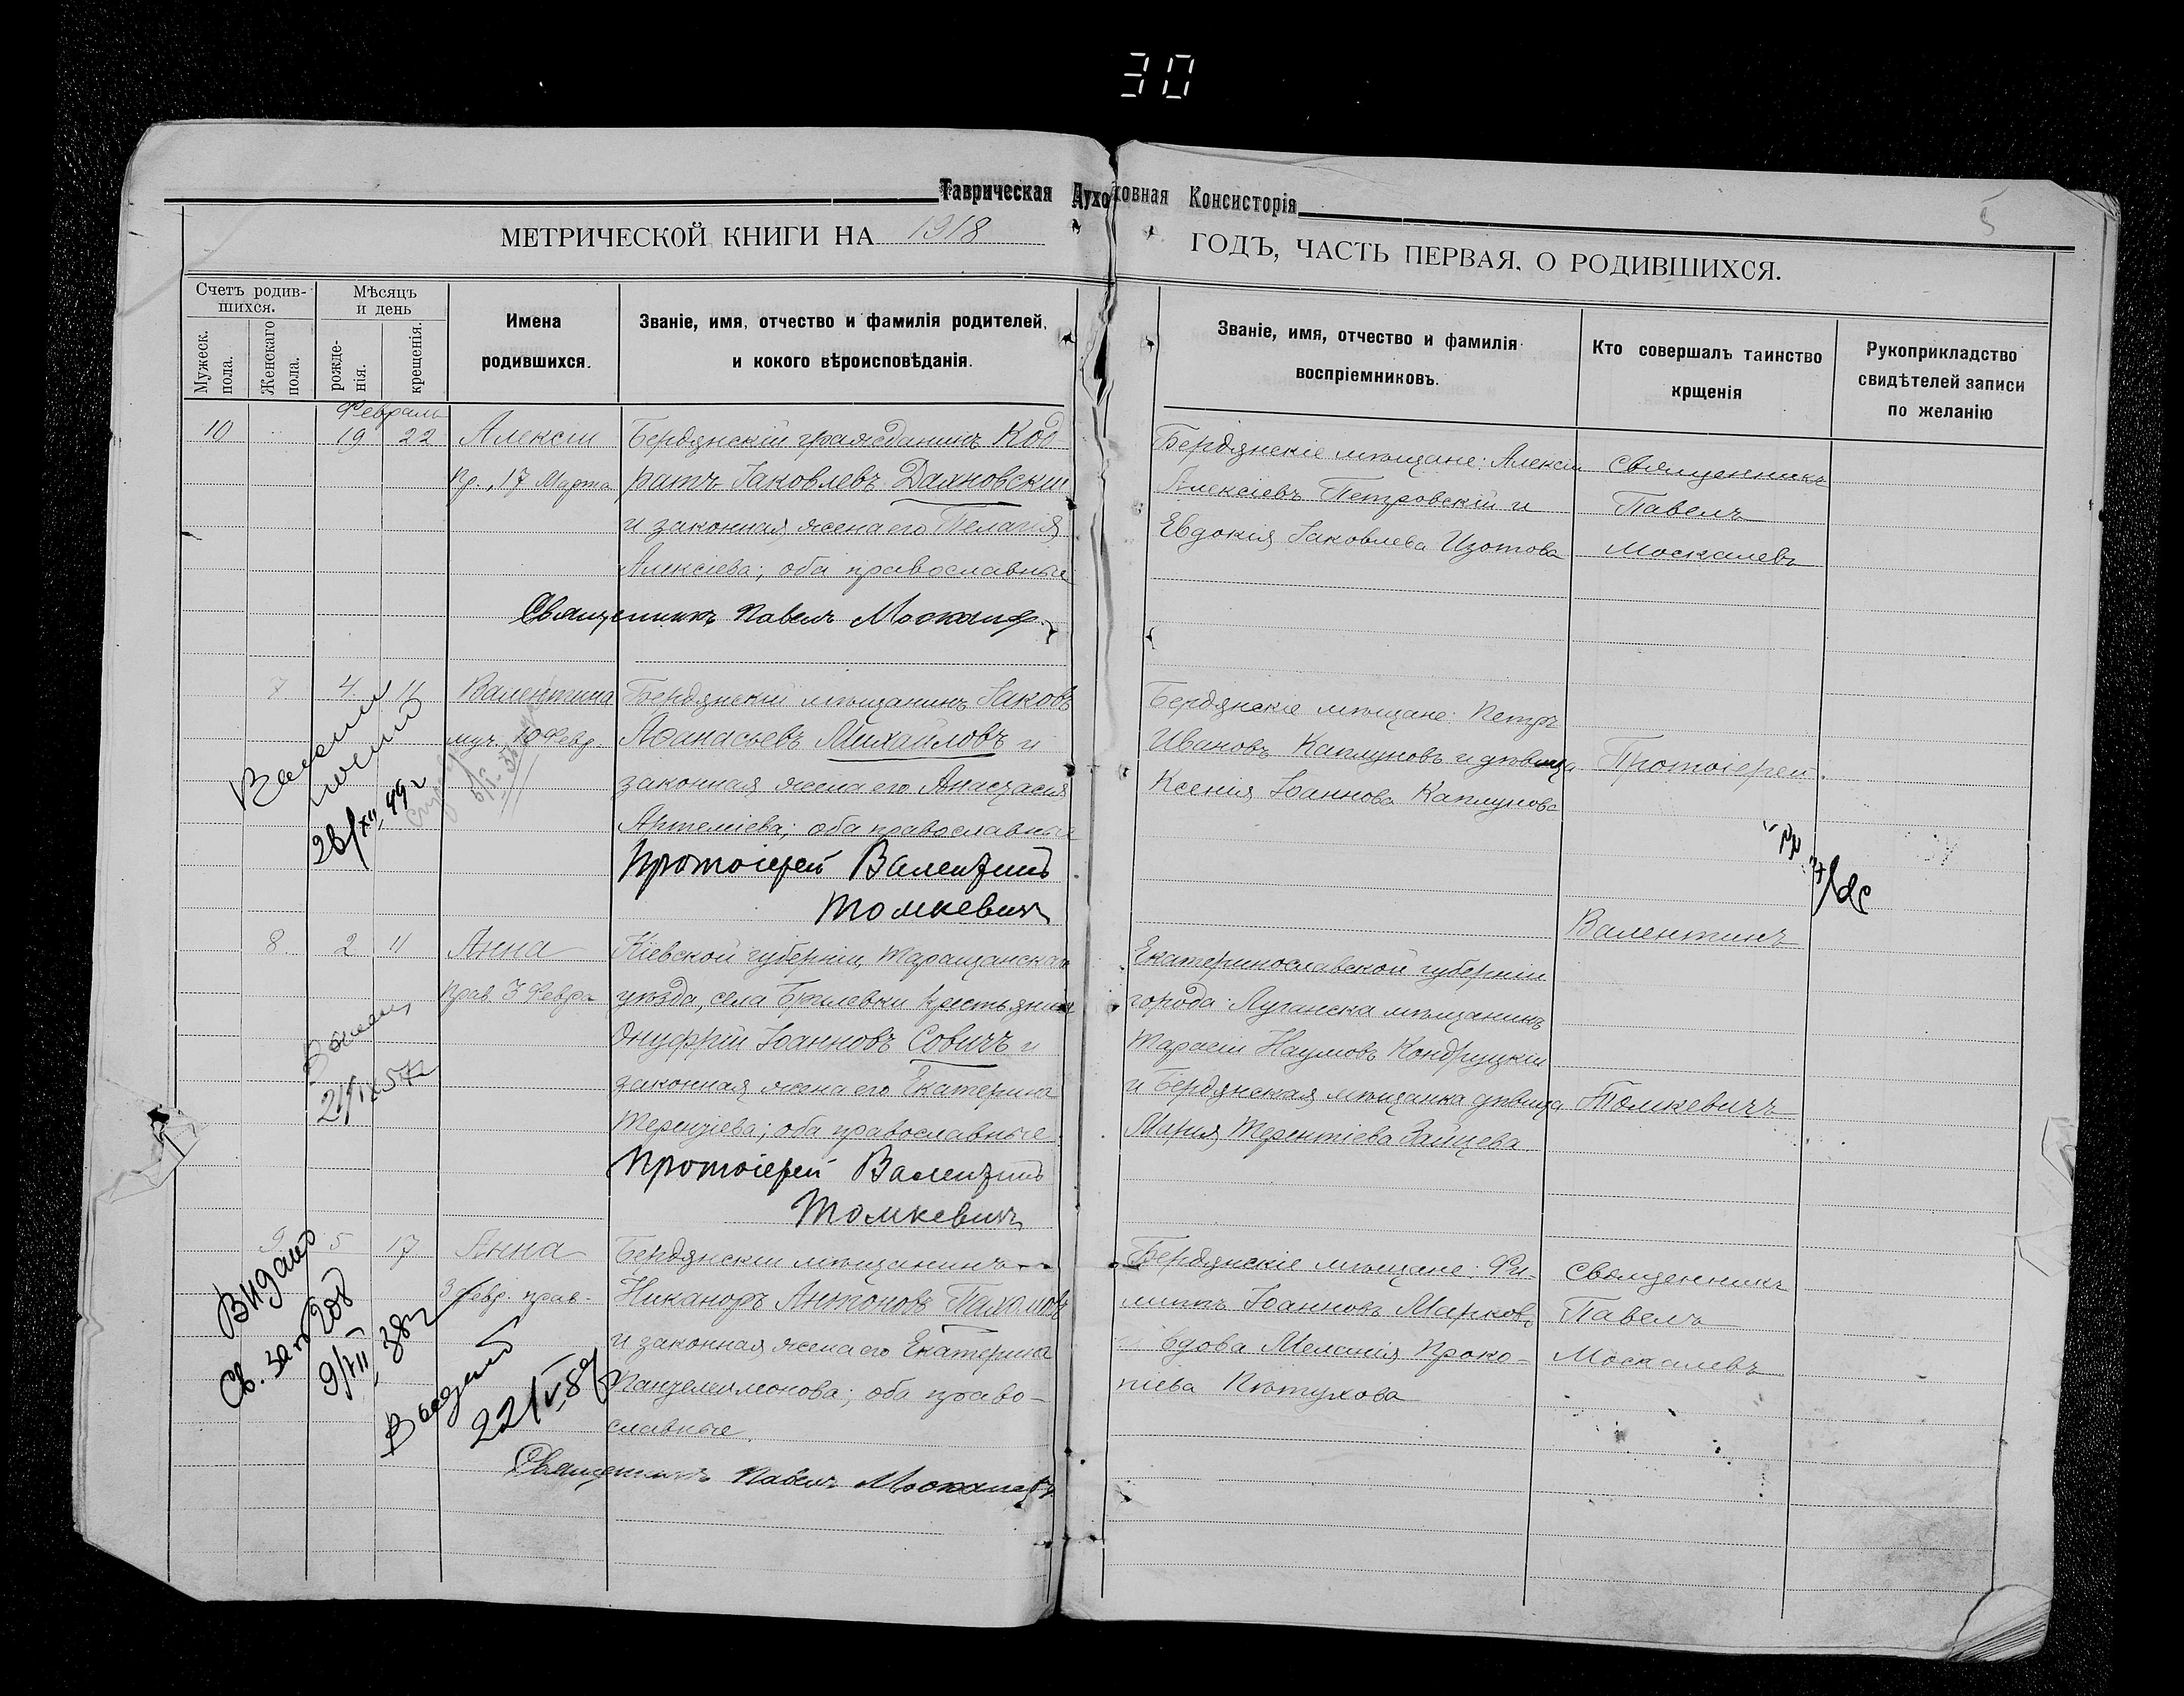 30
Таврическая Духовная Консисторія
5
МЕТРИЧЕСКОЙ КНИГИ НА 1918 ГОДЪ, ЧАСТЬ ПЕРВАЯ, О РОДИВШИХСЯ.
Счетъ родив-
шихся.
Мужеск.
пола.
Женскаго
пола.
Мѣсяцъ
и день
рожде-
нія.
крещенія.
Имена
родившихся.
Званіе, имя, отчество и фамилія родителей,
и кокого вѣроисповѣданія.
Званіе, имя, отчество и фамилія
воспріемниковъ.
Кто совершалъ таинство
крщенія
Рукоприкладство
свидѣтелей записи
по желанію
Февраль
10 19 22 Алексій
Пр., 17 Марта
Бердянскій гражданинъ Код-
ратъ Іаковлевъ Даяновскій
и законная жена его Пелагія
Алексіева; оба православные
Священникъ Павелъ Москалев
Бердянскіе мѣщане: Алексій
Алексіевъ Петровскій и
Евдокія Іаковлева Изотова
Священникъ
Павелъ
Москалевъ
7 4 11 Валентина
муч. 10 Февр.
Бердянскій мѣщанинъ Іаковъ
Аѳанасьевъ Михайловъ и
законная жена его Анастасія
Артеміева; оба православные
Протоіерей Валентинъ
Томкевичъ
28/XII 49 г
Бердянскіе мѣщане: Петръ
Ивановъ Каплуновъ и дѣвица
Ксенія Іоаннова Каплунова
Протоіерей
Валентинъ
Томкевичъ
8 2 11 Анна
прав. 3 Февр.
Кіевской губерніи, Таращанскаго
уѣзда, села крестьянинъ
Онуфрій Іоанновъ Совичъ и
законная жена его Екатерина
Терентіева; оба православные.
Протоіерей Валентинъ
Томкевичъ
Екатеринославской губерніи
города Луганска мѣщанинъ
Тарасій Наумовъ Кондруцкій
и Бердянская мѣщанка дѣвица
Марія Терентіева Зайцева.
9 5 17 Анна
3 февр. прав.
Бердянскій мѣщанинъ
Никаноръ Антоновъ Пахомовъ
и законная жена его Екатерина
Пантелеимонова; оба право-
славные.
Священникъ Павелъ Москалевъ
Видано
Св. за № 208
9/VII 38 г
22/V
Бердянскіе мѣщане: Фи-
липпъ Іоанновъ Марков
вдова Меланія Проко-
піева Пѣтухова
Священникъ
Павелъ
Москалевъ